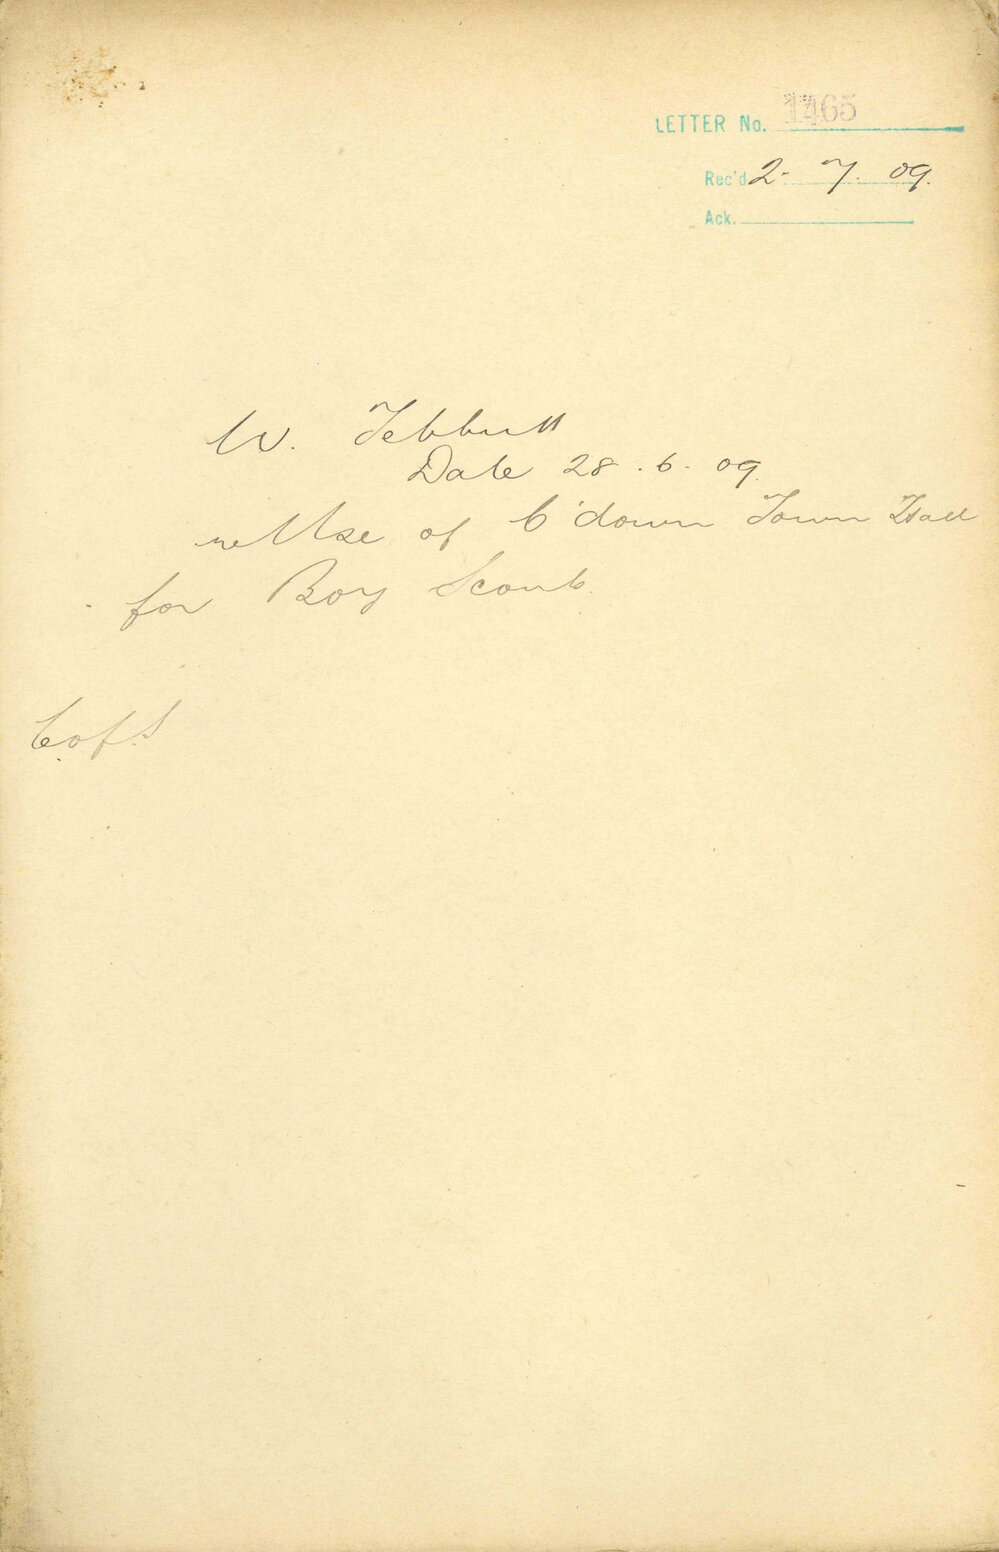 LETTER No. 1465
Rec'd 2. 7. 09.
Ack.
W. Tebbutt
Date 28.6.09.
re Use of C'down Town Hall
for Boy Scouts.
C of S